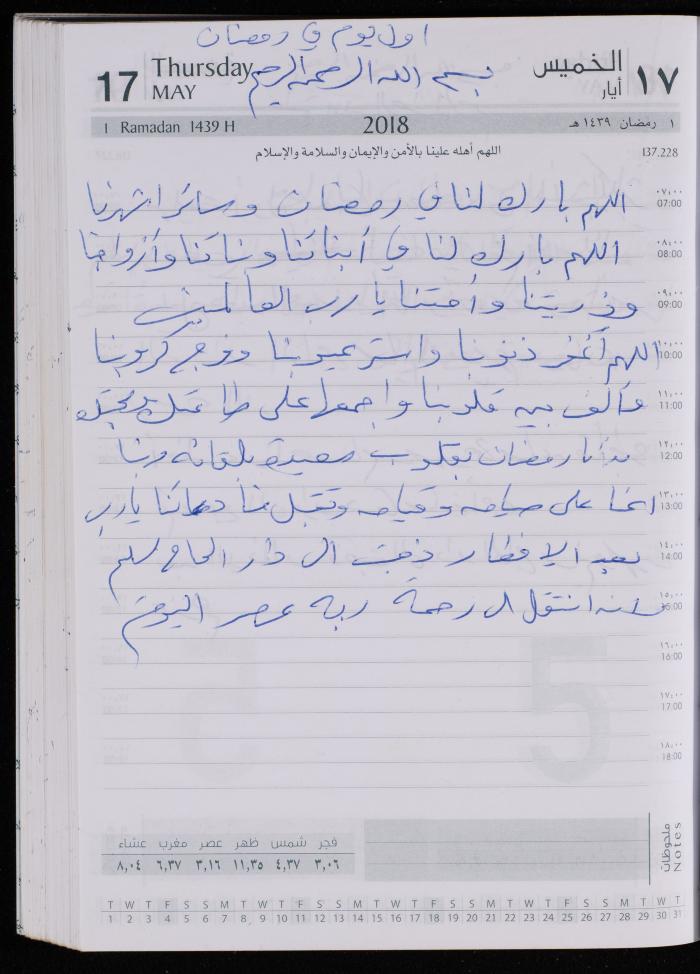 اول يوم في رمضان
17 Thursday MAY بسم الله الرحمن الرحيم الخميس أيار ١٧
1 Ramadan 1439 H 2018 ١ رمضان ١٤٣٩ هـ
اللهم أهله علينا بالأمن والإيمان والسلامة والإسلام 137.228
٠٧:٠٠ 07:00 اللهم بارك لنا في رمضان وسائر اشهرنا
٠٨:٠٠ 08:00 اللهم بارك لنا في أبنائنا وبناتنا وأزواجنا
٠٩:٠٠ 09:00 وذريتنا وأمتنا يا رب العالمين
١٠:٠٠ 10:00 اللهم أغفر ذنوبنا واستر عيوبنا وفرج كروبنا
١١:٠٠ 11:00 وألف بين قلوبنا واجمعها على طاعتك ومحبتك
١٢:٠٠ 12:00 بدأنا رمضان بقلوب سعيدة بلقائه ربنا
١٣:٠٠ 13:00 اعنا على صيامه وقيامه وتقبل منا دعائنا يا رب
١٤:٠٠ 14:00 بعد الافطار ذهبت الى دار الحاج
١٥:٠٠ 15:00 لأنه انتقل الى رحمة ربه عصر اليوم
١٦:٠٠ 16:00
١٧:٠٠ 17:00
١٨:٠٠ 18:00
ملحوظات Notes
فجر شمس ظهر عصر مغرب عشاء
٣,٠٦ ٤,٣٧ ١١,٣٥ ٣,١٦ ٦,٣٧ ٨,٠٤
T W T F S S M T W T F S S M T W T F S S M T W T F S S M T W T
1 2 3 4 5 6 7 8 9 10 11 12 13 14 15 16 17 18 19 20 21 22 23 24 25 26 27 28 29 30 31